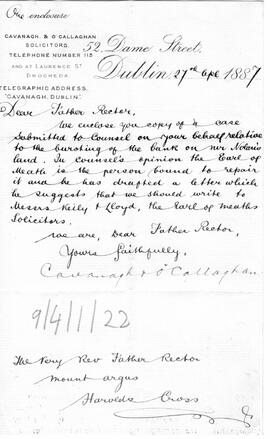 One enclosure
CAVANAGH, & O'CALLAGHAN
SOLICITORS.
TELEPHONE NUMBER 115
AND AT LAURENCE ST
DROGHEDA
TELEGRAPHIC ADDRESS,
"CAVANAGH, DUBLIN."
52, Dame Street,
Dublin 27th Apl 1887
Dear Father Rector,
We enclose you copy of a case
submitted to Counsel on your behalf relative
to the bursting of the bank on Mr Nolans
land. In Counsel's opinion the Earl of
Meath is the person bound to repair
it and he has drafted a letter which
he suggests that we should write to
Messrs Keily & Lloyd, the Earl of Meaths
Solicitors.
We are, Dear Father Rector,
Yours faithfully,
Cavanagh & O'Callaghan
9/4/1/22
The Very Rev Father Rector
Mount Argus
Harolds Cross